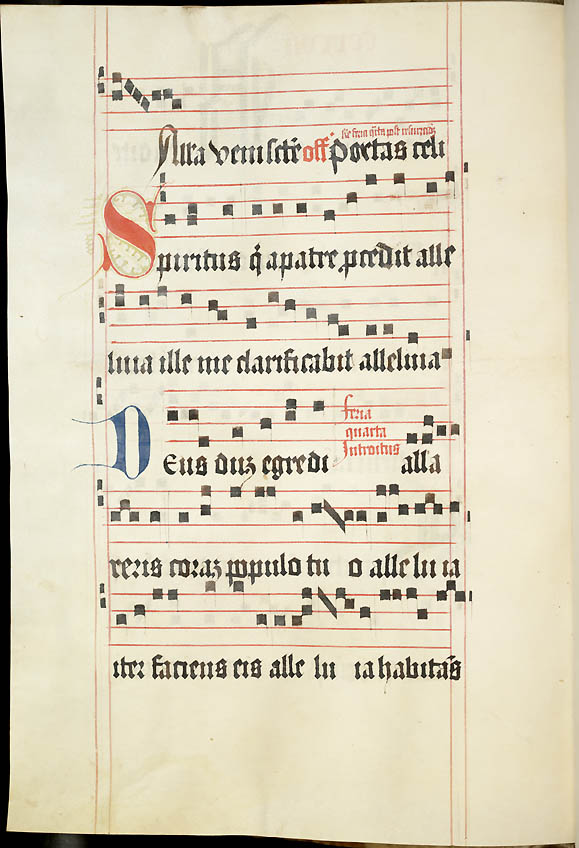 Alla Veni sctē off Portas celi
Spiritus q̄ a patre ꝓcedit alle
luia ille me clarificabit alleluia
feria
quarta
Introitus
Deus duz egredi alla
reris coraz populo tu o alle lu ia
iter faciens eis alle lu ia habitās